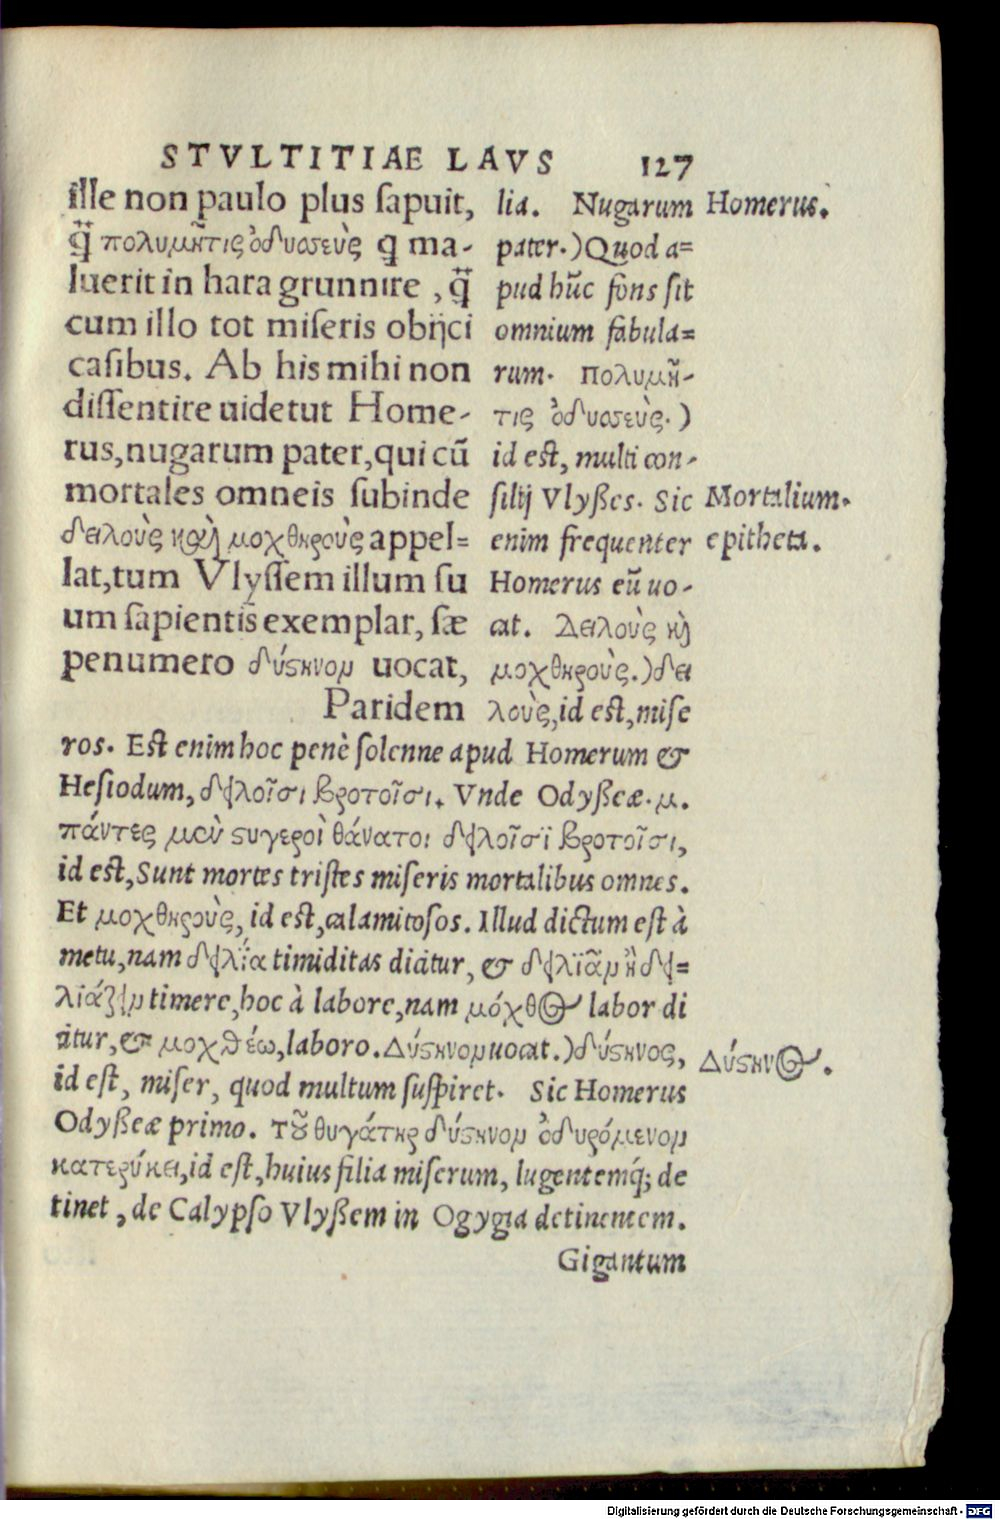 STVLTITIAE LAVS 127
ille non paulo plus sapuit,
q̃̈ πολυμῆτις ὀδυσσεὺς q̃ ma-
luerit in hara grunnire, q̃̈
cum illo tot miseris obijci
casibus. Ab his mihi non
dissentire uidetut Home-
rus, nugarum pater, qui cũ
mortales omneis subinde
δειλοὺς καὶ μοχθηροὺς appel=
lat, tum Vlyssem illum su
um sapientis̃ exemplar, sæ
penumero δύστηνομ uocat,
Paridem
lia. Nugarum
pater.) Quod a=
pud hũc fons sit
omnium fabula=
rum. πολυμῆ-
τις ὀδυσσεὺς.)
id est, multi con-
silij Vlyßes. Sic
enim frequenter
Homerus eũ uo-
cat. Δειλοὺς κỳ
μοχθηροὺς.) δει
λοὺς, id est, mise
ros. Est enim hoc penè solenne apud Homerum &
Hesiodum, δειλοῖσι βροτοῖσι. Vnde Odyßeæ. μ.
πάντες μὲν στυγεροὶ θάνατοι δειλοῖσϊ βροτοῖσι,
id est, Sunt mortes tristes miseris mortalibus omnes.
Et μοχθηροὺς, id est, calamitosos. Illud dictum est à
metu, nam δειλΐα timiditas dicitur, & δειλϊᾶμ ἢ δει=
λιάζειμ timere, hoc à labore, nam μόχθος labor di
citur, & μοχθέω, laboro. Δύστηνομ uocat.) δύστηνος,
id est, miser, quod multum suspiret. Sic Homerus
Odyßeæ primo. τοῦ θυγάτηρ δύστηνομ ὀδυρόμενομ
κατερύκει, id est, huius filia miserum, lugentemq́; de
tinet, de Calypso Vlyßem in Ogygia detinentem.
Gigantum
Homerus.
Mortalium.
epitheta.
Δύστηνος.
Digitalisierung gefördert durch die Deutsche Forschungsgemeinschaft - DFG